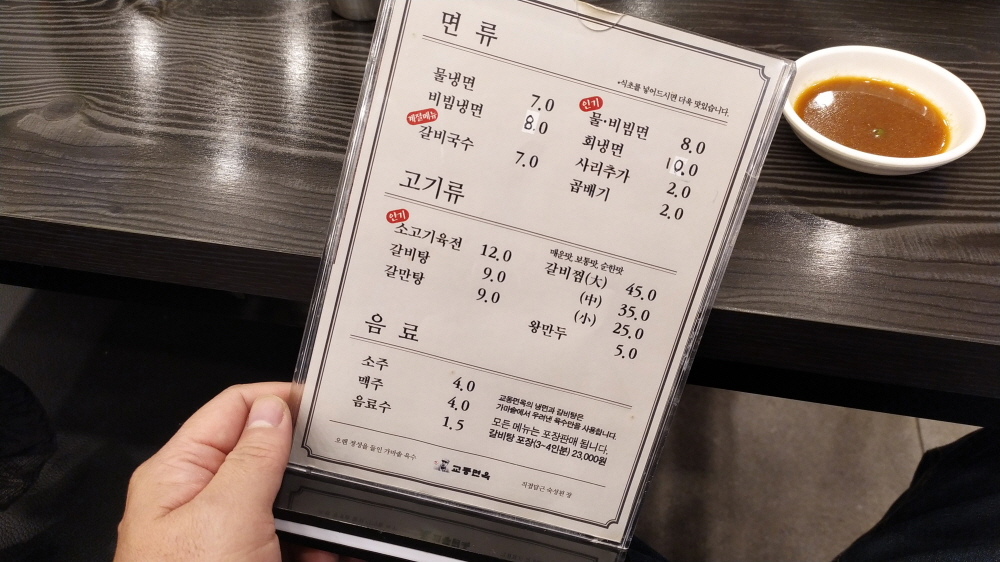 면 류
*식초를 넣어드시면 더욱 맛있습니다.
물냉면 7.0
비빔냉면 8.0
계절메뉴
갈비국수 7.0
인기
물·비빔면 8.0
회냉면 10.0
사리추가 2.0
곱빼기 2.0
고기류
인기
소고기육전 12.0
갈비탕 9.0
갈만탕 9.0
매운맛, 보통맛, 순한맛
갈비찜(大) 45.0
(中) 35.0
(小) 25.0
왕만두 5.0
음 료
소주 4.0
맥주 4.0
음료수 1.5
교동면옥의 냉면과 갈비탕은
가마솥에서 우려낸 육수만을 사용합니다.
모든 메뉴는 포장판매 됩니다.
갈비탕 포장(3~4인분) 23,000원
오랜 정성을 들인 가마솥 육수
교동면옥
직접담근 숙성된 장